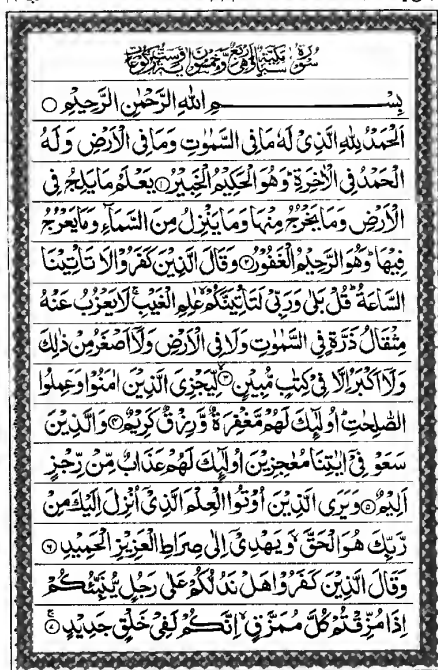 سورة سبا مكية وهي اربع وخمسون اية وست ركوعات
بِسْمِ اللهِ الرَّحْمٰنِ الرَّحِيْمِ ۝
اَلْحَمْدُ لِلّٰهِ الَّذِيْ لَهٗ مَا فِي السَّمٰوٰتِ وَمَا فِي الْاَرْضِ وَلَهُ
الْحَمْدُ فِي الْاٰخِرَةِ ؕ وَهُوَ الْحَكِيْمُ الْخَبِيْرُ ۝۱ يَعْلَمُ مَا يَلِجُ فِي
الْاَرْضِ وَمَا يَخْرُجُ مِنْهَا وَمَا يَنْزِلُ مِنَ السَّمَآءِ وَمَا يَعْرُجُ
فِيْهَا ؕ وَهُوَ الرَّحِيْمُ الْغَفُوْرُ ۝۲ وَقَالَ الَّذِيْنَ كَفَرُوْا لَا تَاْتِيْنَا
السَّاعَةُ ؕ قُلْ بَلٰى وَرَبِّيْ لَتَاْتِيَنَّكُمْ ۙ عٰلِمِ الْغَيْبِ ۚ لَا يَعْزُبُ عَنْهُ
مِثْقَالُ ذَرَّةٍ فِي السَّمٰوٰتِ وَلَا فِي الْاَرْضِ وَلَاۤ اَصْغَرُ مِنْ ذٰلِكَ
وَلَاۤ اَكْبَرُ اِلَّا فِيْ كِتٰبٍ مُّبِيْنٍ ۝۳ لِّيَجْزِيَ الَّذِيْنَ اٰمَنُوْا وَعَمِلُوا
الصّٰلِحٰتِ ؕ اُولٰٓئِكَ لَهُمْ مَّغْفِرَةٌ وَّرِزْقٌ كَرِيْمٌ ۝۴ وَالَّذِيْنَ
سَعَوْ فِيْۤ اٰيٰتِنَا مُعٰجِزِيْنَ اُولٰٓئِكَ لَهُمْ عَذَابٌ مِّنْ رِّجْزٍ
اَلِيْمٌ ۝۵ وَيَرَى الَّذِيْنَ اُوْتُوا الْعِلْمَ الَّذِيْۤ اُنْزِلَ اِلَيْكَ مِنْ
رَّبِّكَ هُوَ الْحَقَّ ۙ وَيَهْدِيْۤ اِلٰى صِرَاطِ الْعَزِيْزِ الْحَمِيْدِ ۝۶
وَقَالَ الَّذِيْنَ كَفَرُوْا هَلْ نَدُلُّكُمْ عَلٰى رَجُلٍ يُّنَبِّئُكُمْ
اِذَا مُزِّقْتُمْ كُلَّ مُمَزَّقٍ ۙ اِنَّكُمْ لَفِيْ خَلْقٍ جَدِيْدٍ ۝۷